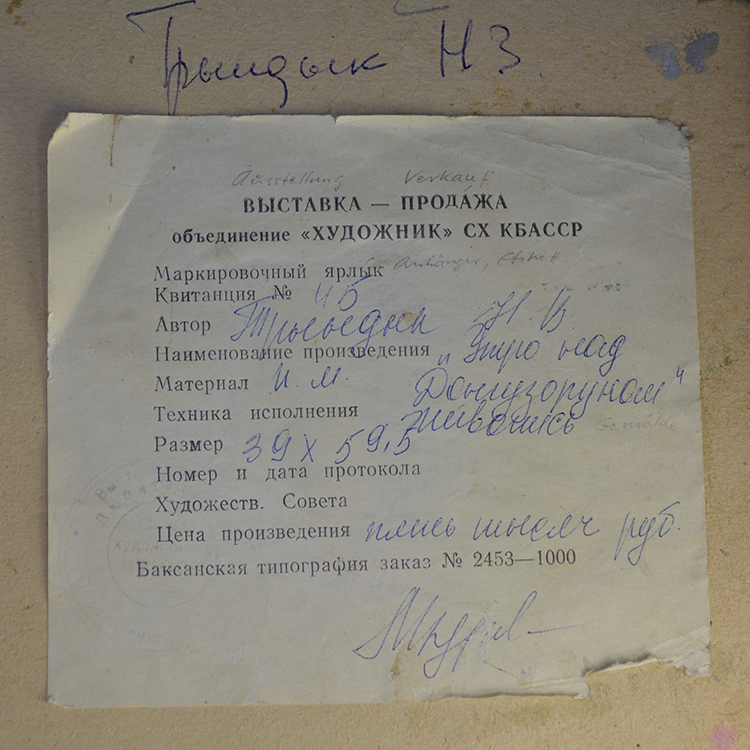 Трындык Н З.
Ausstellung Verkauf
ВЫСТАВКА — ПРОДАЖА
объединение «ХУДОЖНИК» СХ КБАССР
Маркировочный ярлык Anhänger, Etikett
Квитанция № 45
Автор Н. В.
Наименование произведения „Утро над
Материал к. м. Донгузоруном"
Техника исполнения живопись Gemälde
Размер 39 х 59,5
Номер и дата протокола
Художеств. Совета
Цена произведения пять тысяч руб.
Баксанская типография заказ № 2453—1000